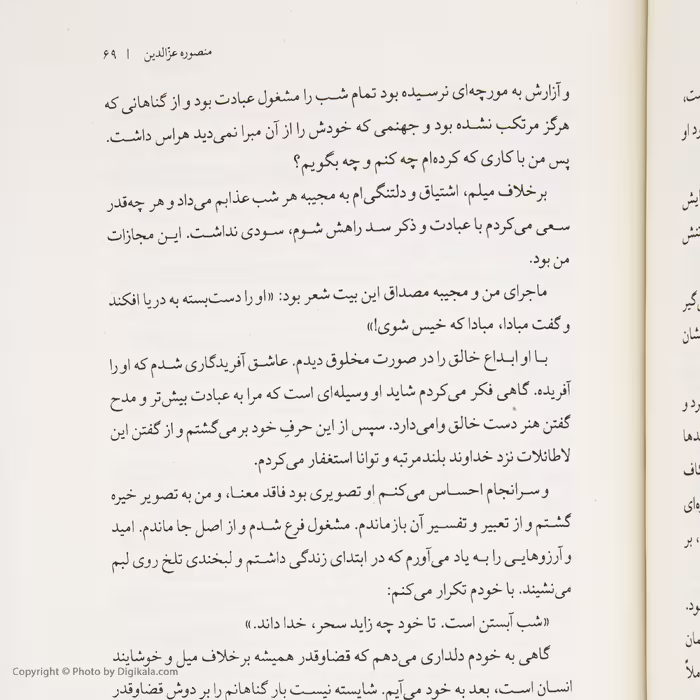 منصوره عزّالدین | ۶۹
و آزارش به مورچه‌ای نرسیده بود تمام شب را مشغول عبادت بود و از گناهانی که
هرگز مرتکب نشده بود و جهنمی که خودش را از آن مبرا نمی‌دید هراس داشت.
پس من با کاری که کرده‌ام چه کنم و چه بگویم؟
برخلاف میلم، اشتیاق و دلتنگی‌ام به مجیبه هر شب عذابم می‌داد و هر چه‌قدر
سعی می‌کردم با عبادت و ذکر سد راهش شوم، سودی نداشت. این مجازات
من بود.
ماجرای من و مجیبه مصداق این بیت شعر بود: «او را دست‌بسته به دریا افکند
و گفت مبادا، مبادا که خیس شوی!»
با او ابداع خالق را در صورت مخلوق دیدم. عاشق آفریدگاری شدم که او را
آفریده. گاهی فکر می‌کردم شاید او وسیله‌ای است که مرا به عبادت بیش‌تر و مدح
گفتن هنر دست خالق وامی‌دارد. سپس از این حرفِ خود برمی‌گشتم و از گفتن این
لاطائلات نزد خداوند بلندمرتبه و توانا استغفار می‌کردم.
و سرانجام احساس می‌کنم او تصویری بود فاقد معنا، و من به تصویر خیره
گشتم و از تعبیر و تفسیر آن بازماندم. مشغول فرع شدم و از اصل جا ماندم. امید
و آرزوهایی را به یاد می‌آورم که در ابتدای زندگی داشتم و لبخندی تلخ روی لبم
می‌نشیند. با خودم تکرار می‌کنم:
«شب آبستن است. تا خود چه زاید سحر، خدا داند.»
گاهی به خودم دلداری می‌دهم که قضاوقدر همیشه برخلاف میل و خوشایند
انسان است، بعد به خود می‌آیم. شایسته نیست بار گناهانم را بر دوش قضاوقدر
Copyright © Photo by Digikala.com